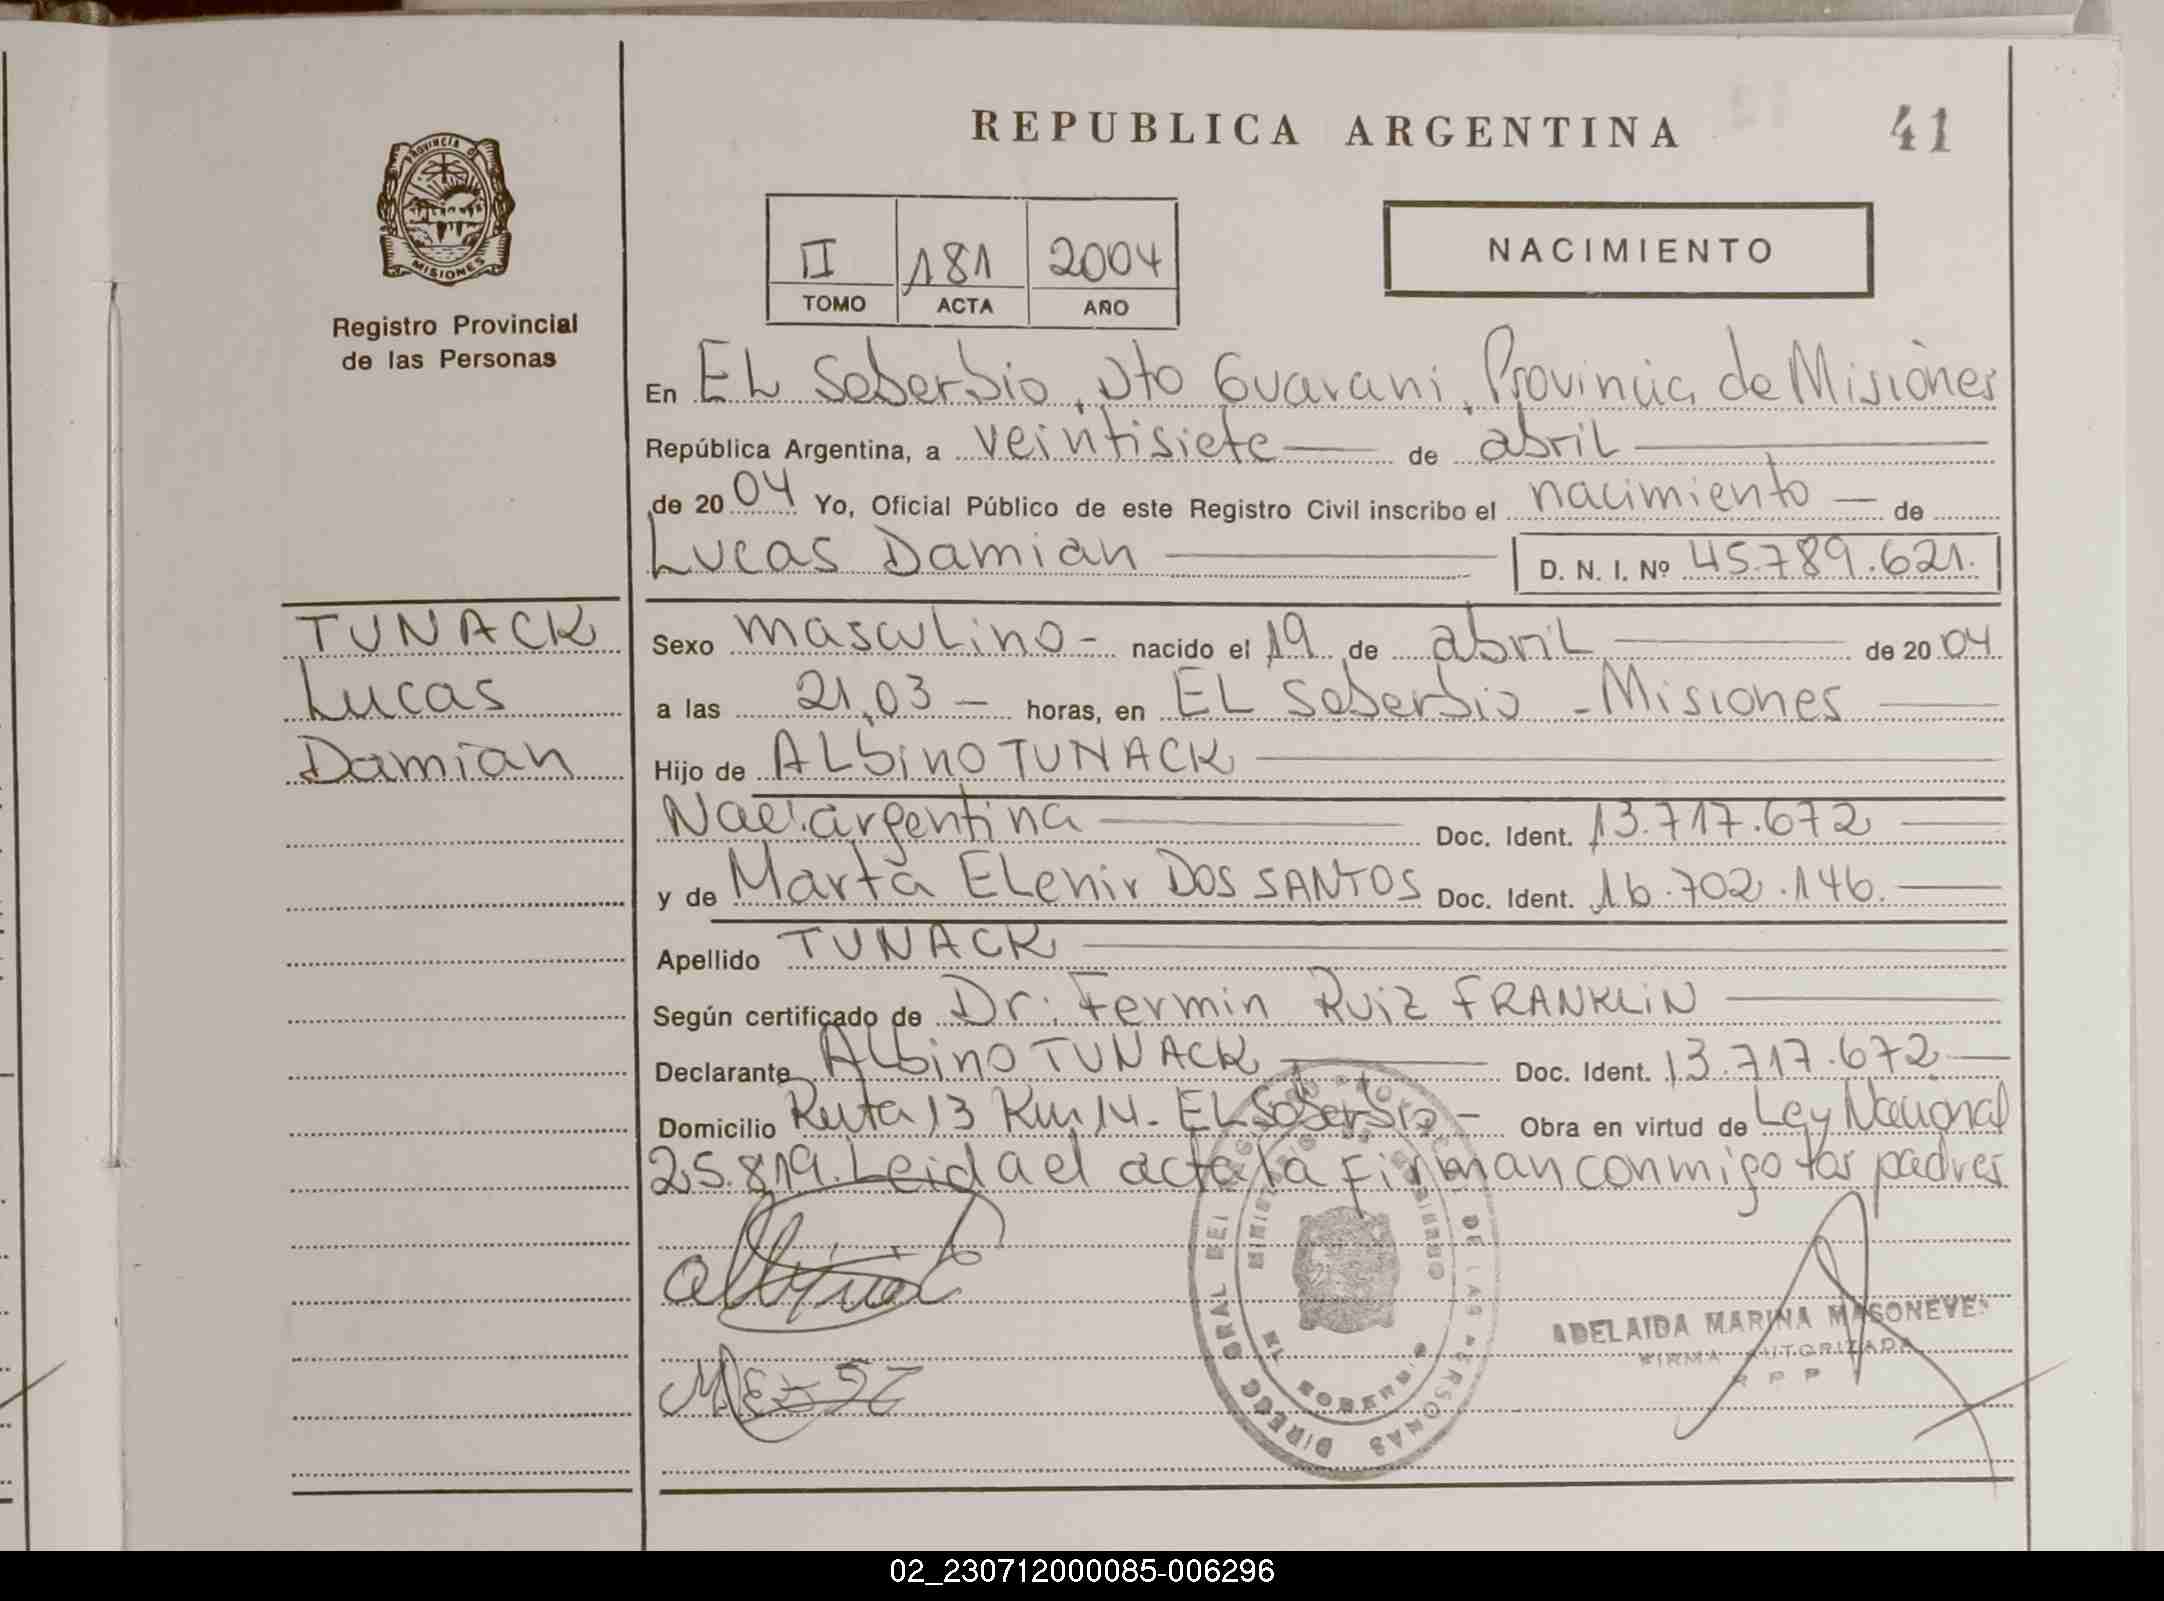 REPUBLICA ARGENTINA
41
PROVINCIA DE
MISIONES
Registro Provincial
de las Personas
II 181 2004
TOMO ACTA AÑO
NACIMIENTO
En EL Soberbio, Dto Guarani, Provincia de Misiones
República Argentina, a veintisiete de abril
de 2004 Yo, Oficial Público de este Registro Civil inscribo el nacimiento de
Lucas Damian D. N. I. Nº 45.789.621.
TUNACK
Lucas
Damian
Sexo masculino nacido el 19 de abril de 2004
a las 21,03 horas, en EL Soberbio - Misiones
Hijo de ALbino TUNACK
Nac. argentina Doc. Ident. 13.717.672
y de Marta ELenir DOS SANTOS Doc. Ident. 16.702.146.
Apellido TUNACK
Según certificado de Dr. Fermin Ruiz FRANKLIN
Declarante ALbino TUNACK Doc. Ident. 13.717.672
Domicilio Ruta 13 Km 14 - EL Soberbio - Obra en virtud de Ley Nacional
25.819. Leida el acta la firman conmigo los padres
DIRECC GRAL DEL DE LAS PERSONAS
EL SOBERBIO
ADELAIDA MARINA
FIRMA AUTORIZADA
R P P
02_230712000085-006296